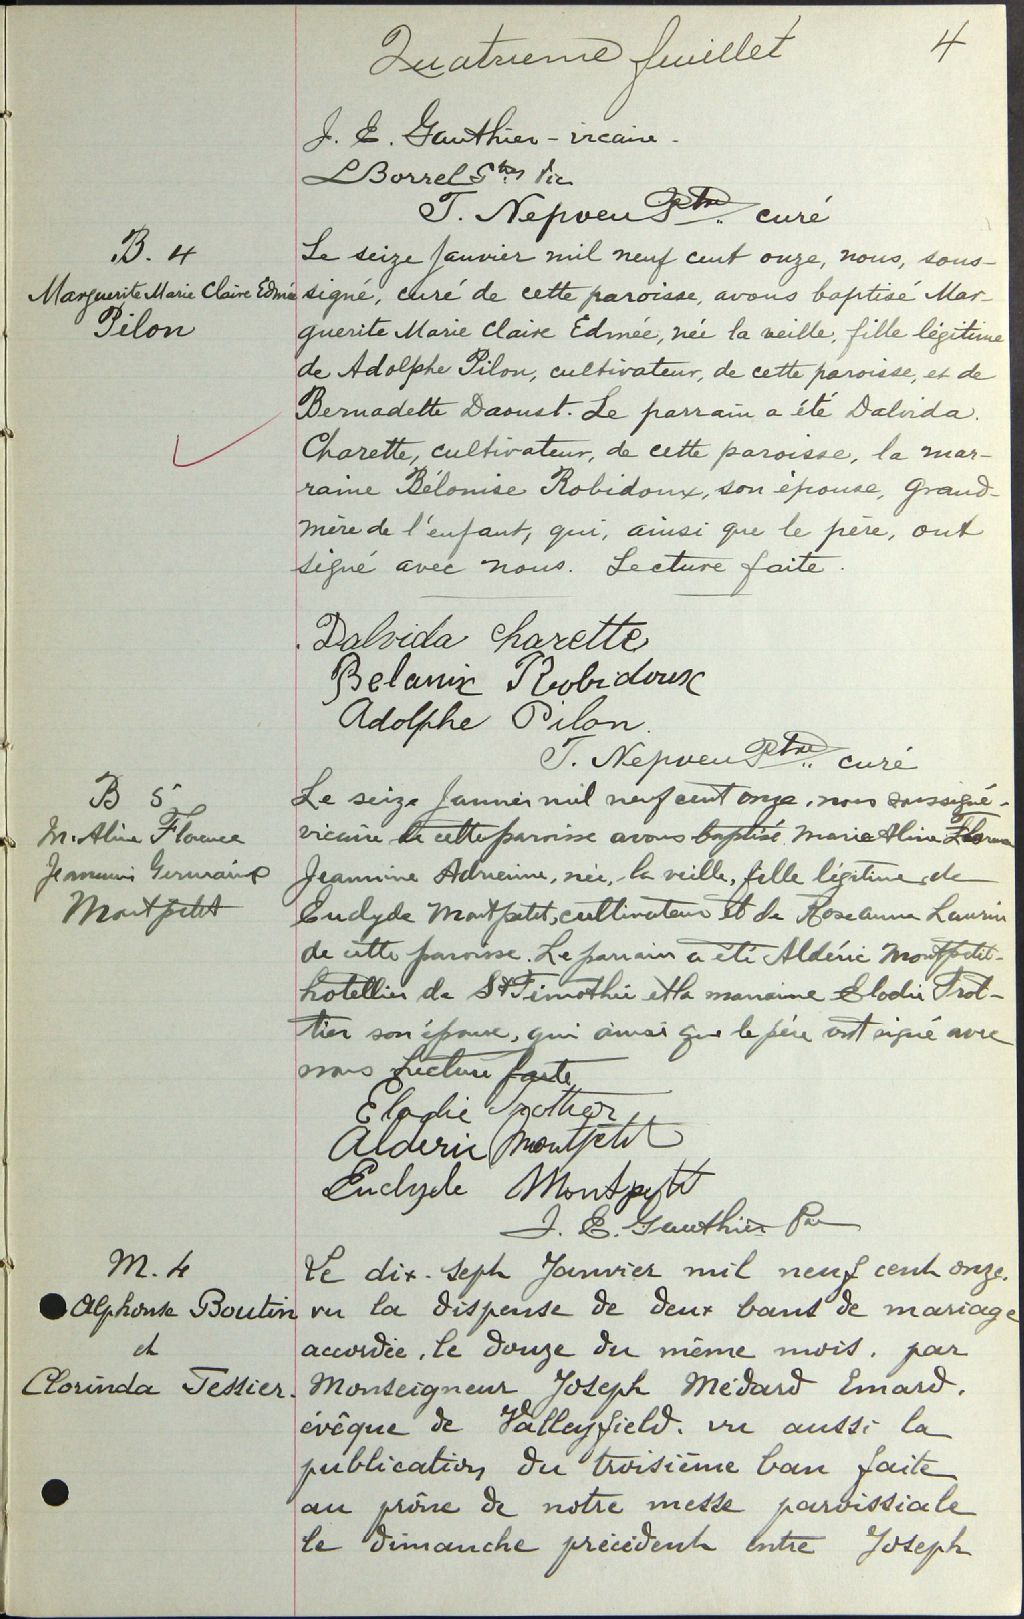 Quatrieme feuillet 4
J. E. Gauthier - vicaire -
L Borrel Ptre Vic
T. Nepveu Ptre curé
B. 4
Marguerite Marie Claire Edmée
Pilon
Le seize Janvier mil neuf cent onze, nous, sous-
signé, curé de cette paroisse, avons baptisé Mar-
guerite Marie Claire Edmée, née la veille, fille légitime
de Adolphe Pilon, cultivateur, de cette paroisse, et de
Bernadette Daoust. Le parrain a été Dalvida
Charette, cultivateur, de cette paroisse, la mar-
raine Bélonise Robidoux, son épouse, grand-
mère de l'enfant, qui, ainsi que le père, ont
signé avec nous. Lecture faite.
Dalvida Charette
Robidoux
Adolphe Pilon
T. Nepveu Ptre curé
B 5
M. Aline Florence
Jeannine Germaine
Montpetit
Le seize Janvier mil neuf cent onze, nous soussigné -
vicaire de cette paroisse avons baptisé Marie Aline Florence
Jeannine Adrienne, née, la veille, fille légitime de
Euclyde Montpetit, cultivateur et de Roseanna Laurin
de cette paroisse. Le parrain a été Aldéric Montpetit-
hotellier de St Timothée et la marraine Elodie Trot-
tier son épouse, qui ainsi que le père ont signé avec
nous Lecture faite
Elodie Trottier
Alderic Montpetit
Euclyde Montpetit
J. E. Gauthier Ptre
M. 4
Alphonse Boutin
et
Clorinda Tessier.
Le dix-sept Janvier mil neuf cent onze,
vu la dispense de deux bans de mariage
accordée, le douze du même mois, par
Monseigneur Joseph Médard Emard,
évêque de Valleyfield, vu aussi la
publication du troisième ban faite
au prône de notre messe paroissiale
le dimanche précédent entre Joseph